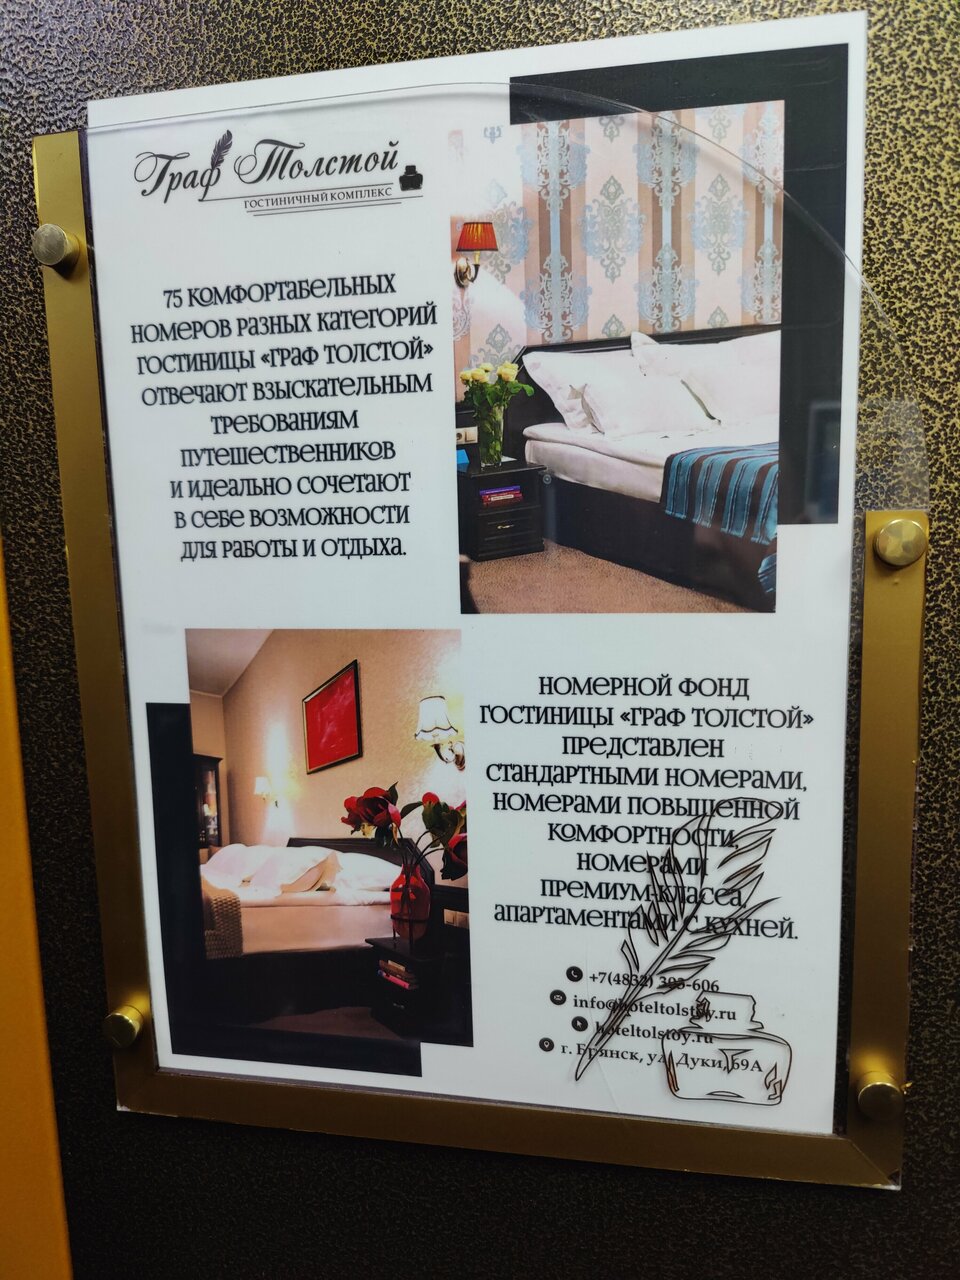 Граф Толстой
ГОСТИНИЧНЫЙ КОМПЛЕКС
75 КОМФОРТАБЕЛЬНЫХ
НОМЕРОВ РАЗНЫХ КАТЕГОРИЙ
ГОСТИНИЦЫ «ГРАФ ТОЛСТОЙ»
ОТВЕЧАЮТ ВЗЫСКАТЕЛЬНЫМ
ТРЕБОВАНИЯМ
ПУТЕШЕСТВЕННИКОВ
И ИДЕАЛЬНО СОЧЕТАЮТ
В СЕБЕ ВОЗМОЖНОСТИ
ДЛЯ РАБОТЫ И ОТДЫХА.
НОМЕРНОЙ ФОНД
ГОСТИНИЦЫ «ГРАФ ТОЛСТОЙ»
ПРЕДСТАВЛЕН
СТАНДАРТНЫМИ НОМЕРАМИ,
НОМЕРАМИ ПОВЫШЕННОЙ
КОМФОРТНОСТИ,
НОМЕРАМИ
ПРЕМИУМ-КЛАССА,
АПАРТАМЕНТАМИ С КУХНЕЙ.
+7(4832) 303-606
info@hoteltolstoy.ru
hoteltolstoy.ru
г. Брянск, ул. Дуки, 69А